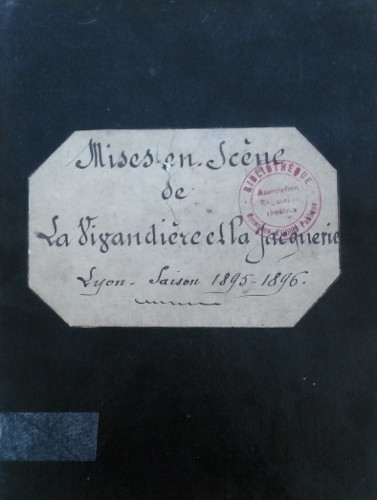 Mises en Scène
de
La Vivandière et la Jacquerie
Lyon - Saison 1895-1896.
BIBLIOTHÈQUE
Association
théâtre